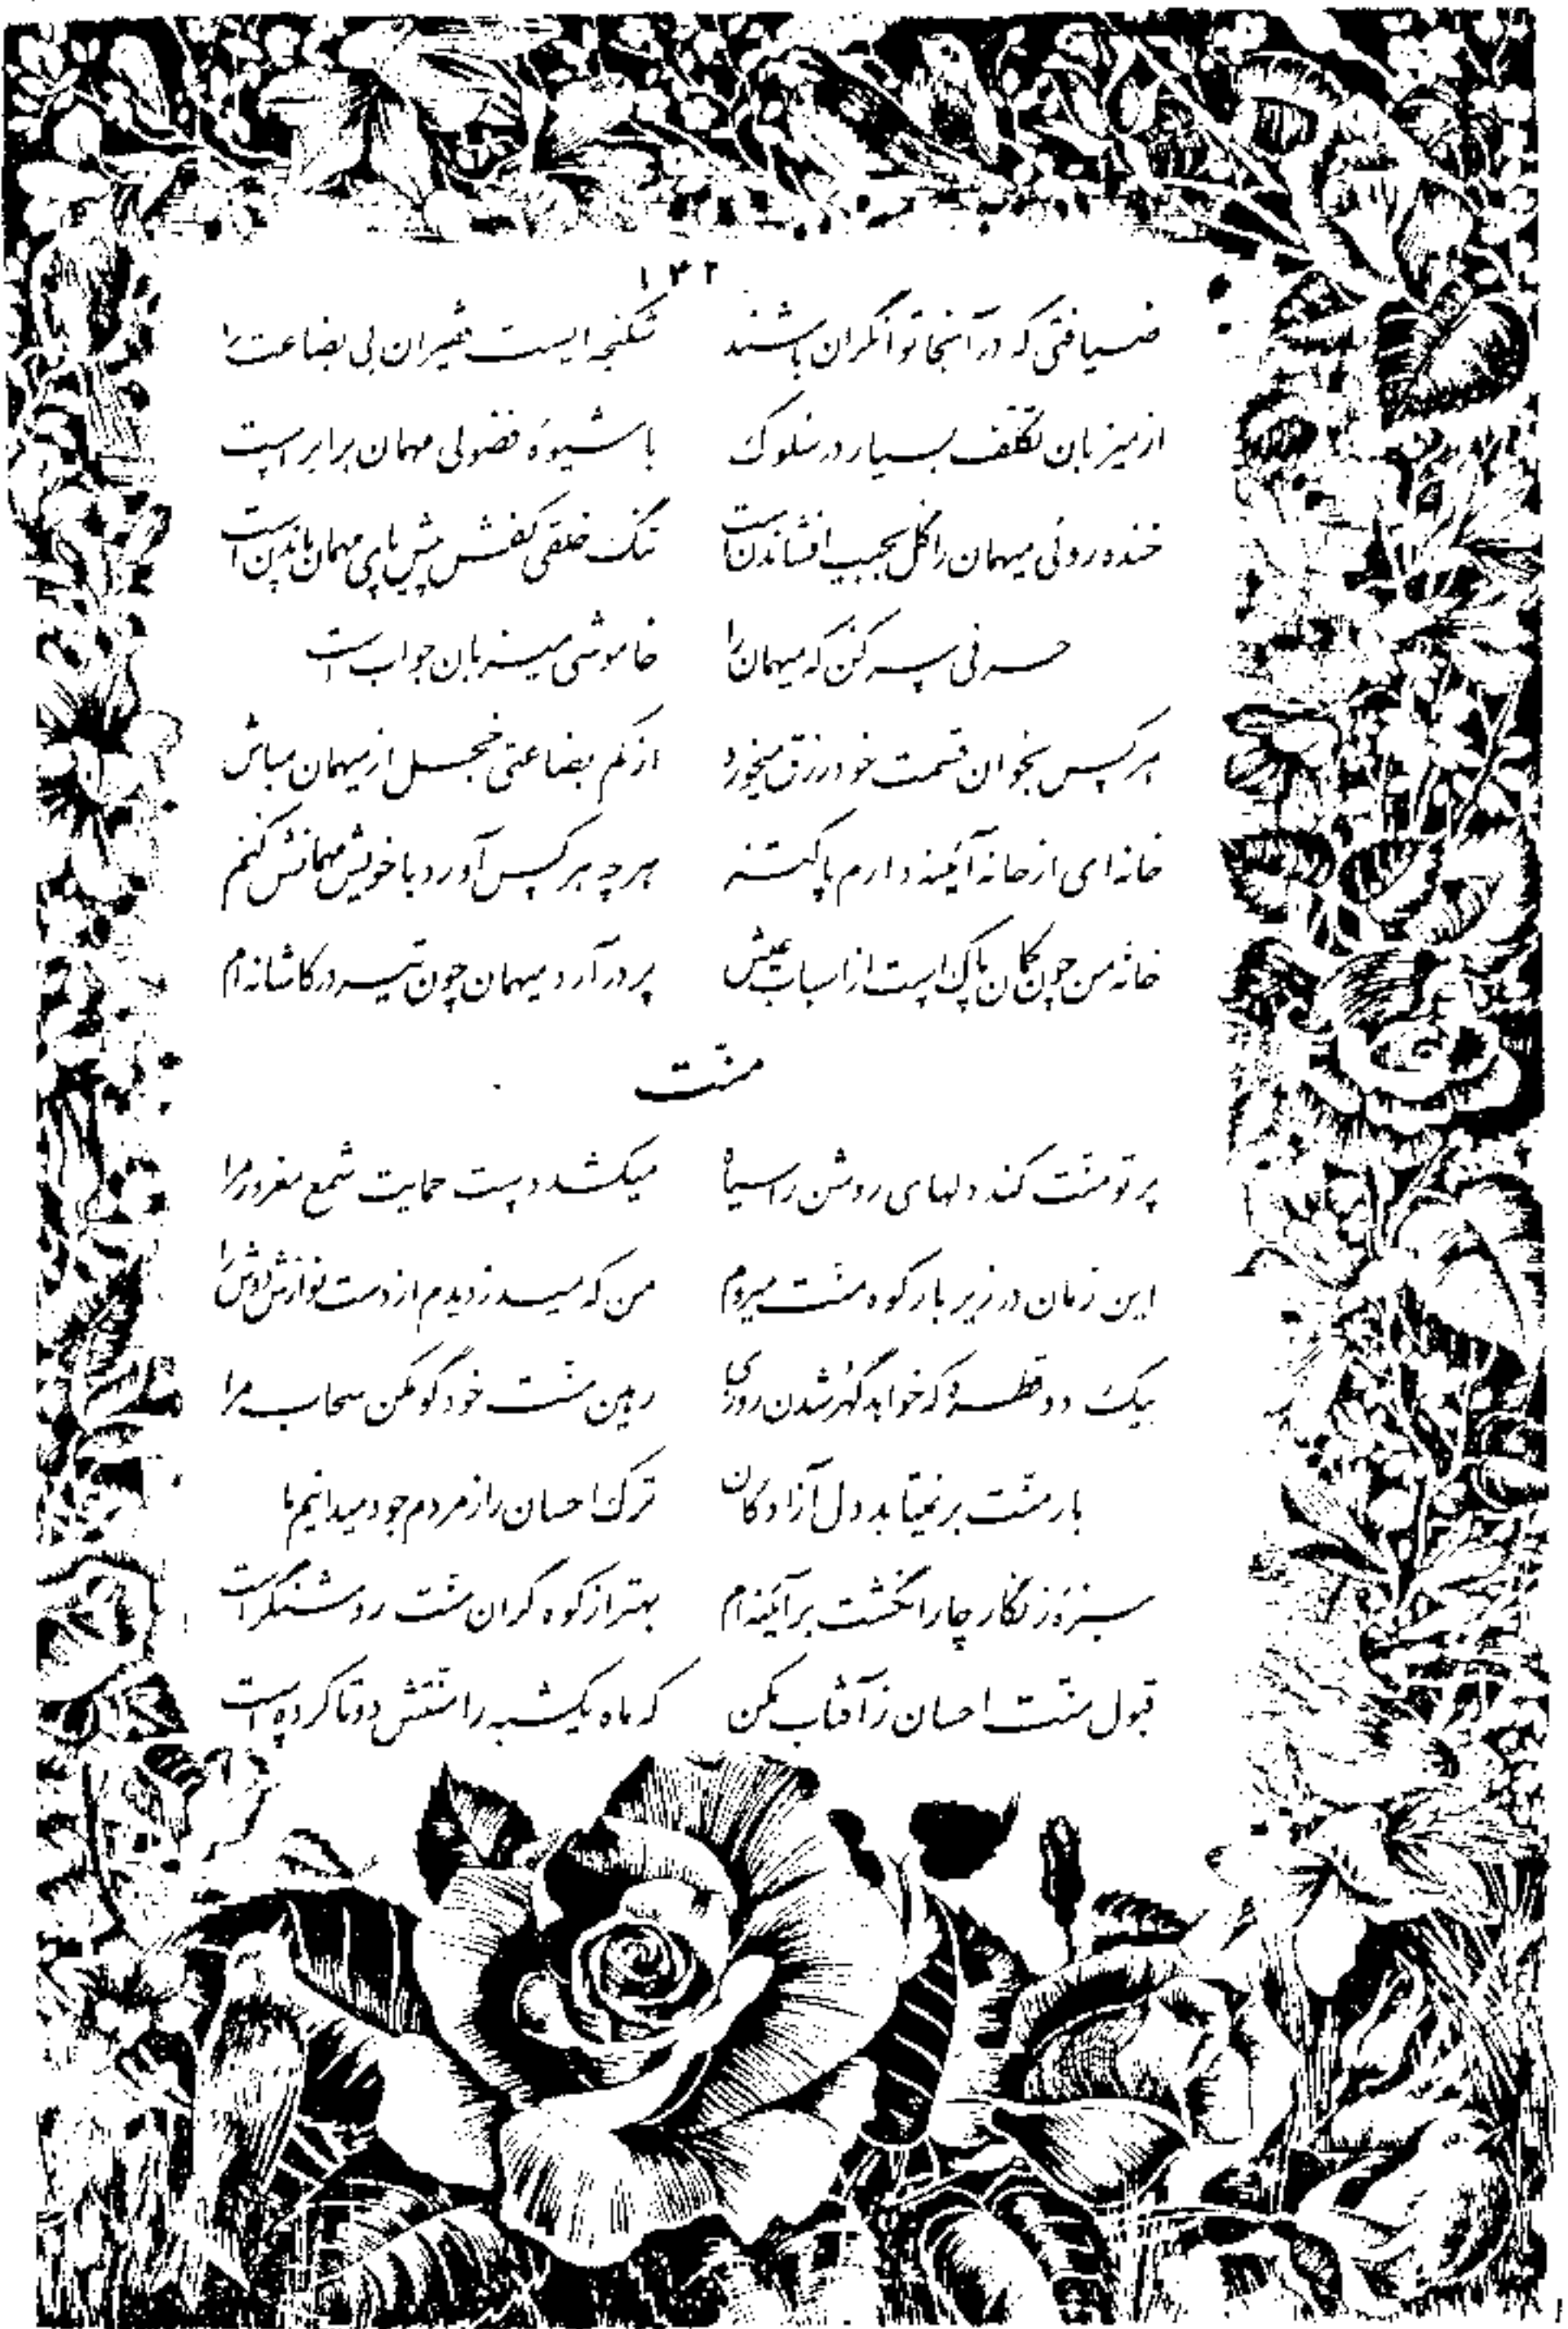 ۱۴۲
ضیافتی که در آنجا توانگران باشند شکنجه ایست فقیران بی بضاعت را
از میزبان تکلف بسیار در سلوک با شیوهٔ فضولی مهمان برابر است
خنده روئی میهمان را گل بجیب افشاندن است تنگ خلقی کفش پیش پای مهمان ماندن است
حرفی سر کن که میهمان را خاموشی میزبان جواب است
هر کس بخوان قسمت خود رزق میخورد از کم بضاعتی خجل از میهمان مباش
خانه ای از خانه آئینه دارم پاکتر هر چه هر کس آورد با خویش مهمانش کنم
خانهٔ من چون کمان پاک است از اسباب عیش پر در آرد میهمان چون تیر در کاشانه ام
منت
پرتو منت کند دلهای روشن را سیاه میکشد دست حمایت شمع مغرور مرا
این زمان در زیر بار کوه منت میروم من که میدزدیدم از دست نوازش دوش را
بیک دو قطرهٔ که خواهد گهر شدن روزی رهین منت خود گو مکن سحاب مرا
بار منت بر نمیتابد دل آزادگان ترک احسان را ز مردم جود میدانیم ما
سبزهٔ زنگار چار انگشت بر آئینه ام بهتر از کوه گران منت روشنگر است
قبول منت احسان ز آفتاب مکن که ماه یکشبه را منتش دوتا کرده است